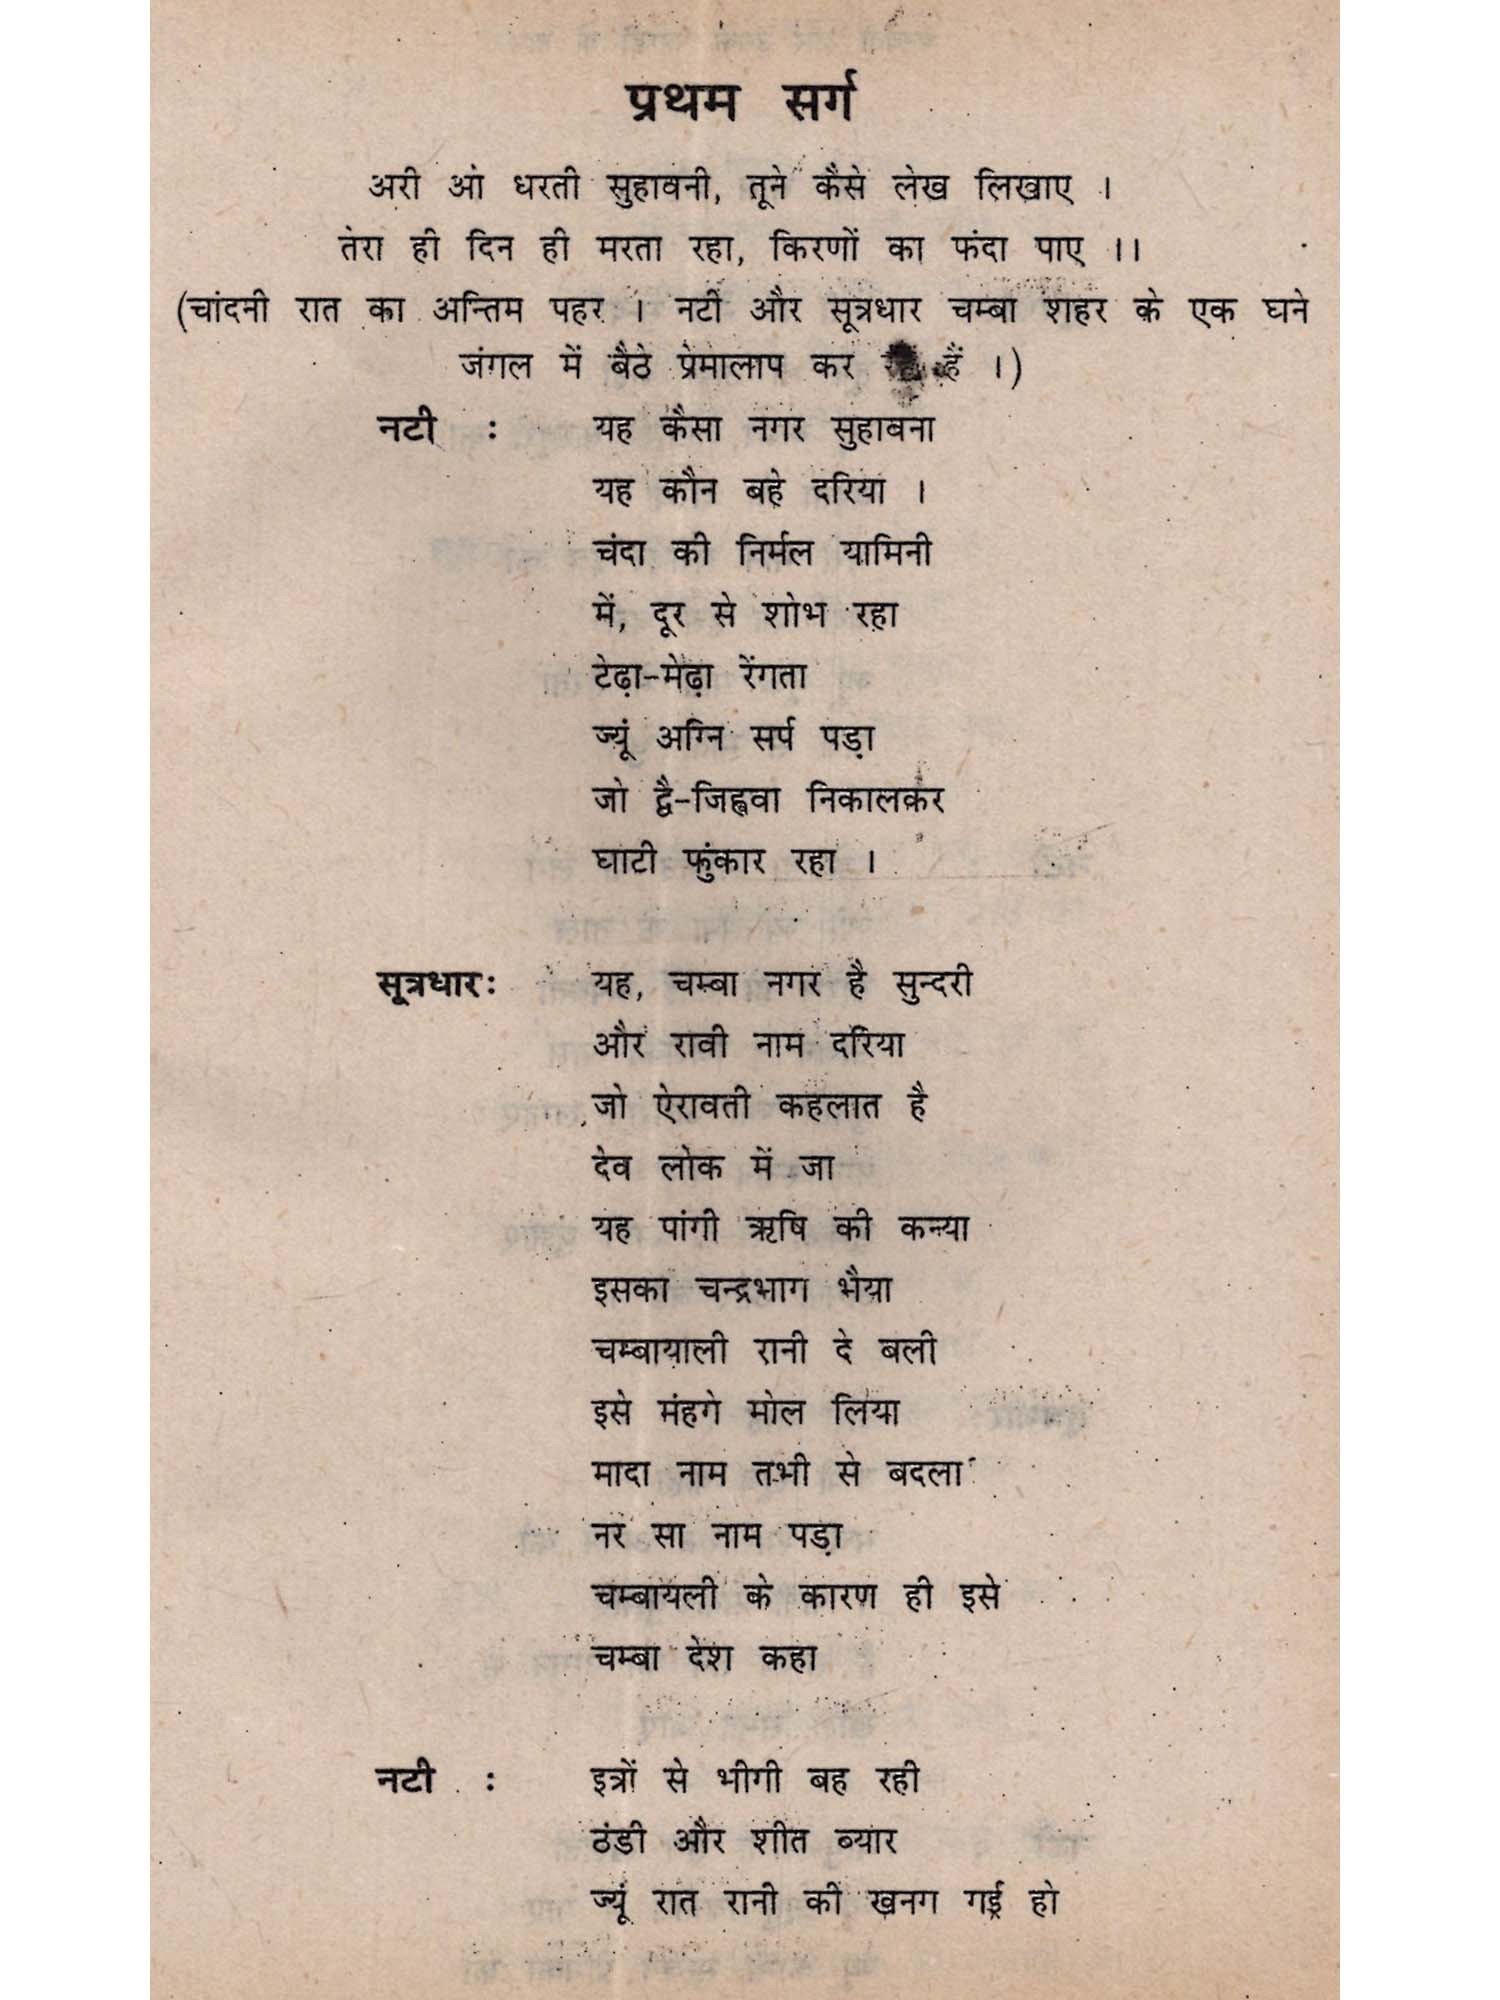 प्रथम सर्ग
अरी आं धरती सुहावनी, तूने कैसे लेख लिखाए ।
तेरा ही दिन ही मरता रहा, किरणों का फंदा पाए ।।
(चांदनी रात का अन्तिम पहर । नटी और सूत्रधार चम्बा शहर के एक घने
जंगल में बैठे प्रेमालाप कर हैं ।)
नटी : यह कैसा नगर सुहावना
यह कौन बहे दरिया ।
चंदा की निर्मल यामिनी
में, दूर से शोभ रहा
टेढ़ा-मेढ़ा रेंगता
ज्यूं अग्नि सर्प पड़ा
जो द्वै-जिह्ववा निकालकर
घाटी फुंकार रहा ।
सूत्रधार: यह, चम्बा नगर है सुन्दरी
और रावी नाम दरिया
जो ऐरावती कहलात है
देव लोक में जा
यह पांगी ऋषि की कन्या
इसका चन्द्रभाग भैया
चम्बायाली रानी दे बली
इसे मंहगे मोल लिया
मादा नाम तभी से बदला
नर सा नाम पड़ा
चम्बायली के कारण ही इसे
चम्बा देश कहा
नटी : इत्रों से भीगी बह रही
ठंडी और शीत ब्यार
ज्यूं रात रानी की खनग गई हो